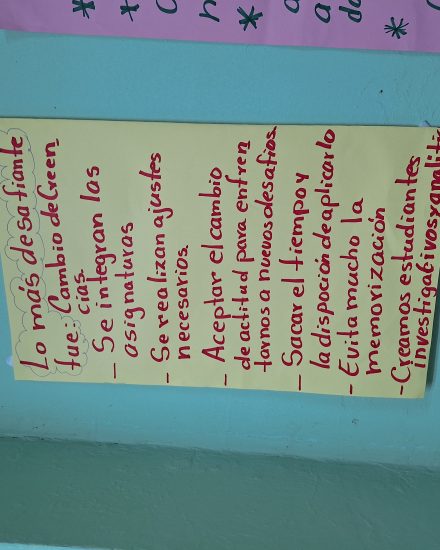 Lo más desafiante
fue: Cambio de Creen_
cias.
- Se integran las
asignaturas
- Se realizan ajustes
necesarios.
- Aceptar el cambio
de actitud para enfren
tarnos a nuevos desafios.
- Sacar el tiempo y
la dispoción de aplicarlo
- Evita mucho la
memorización
- Creamos estudiantes
investigativos y analíti